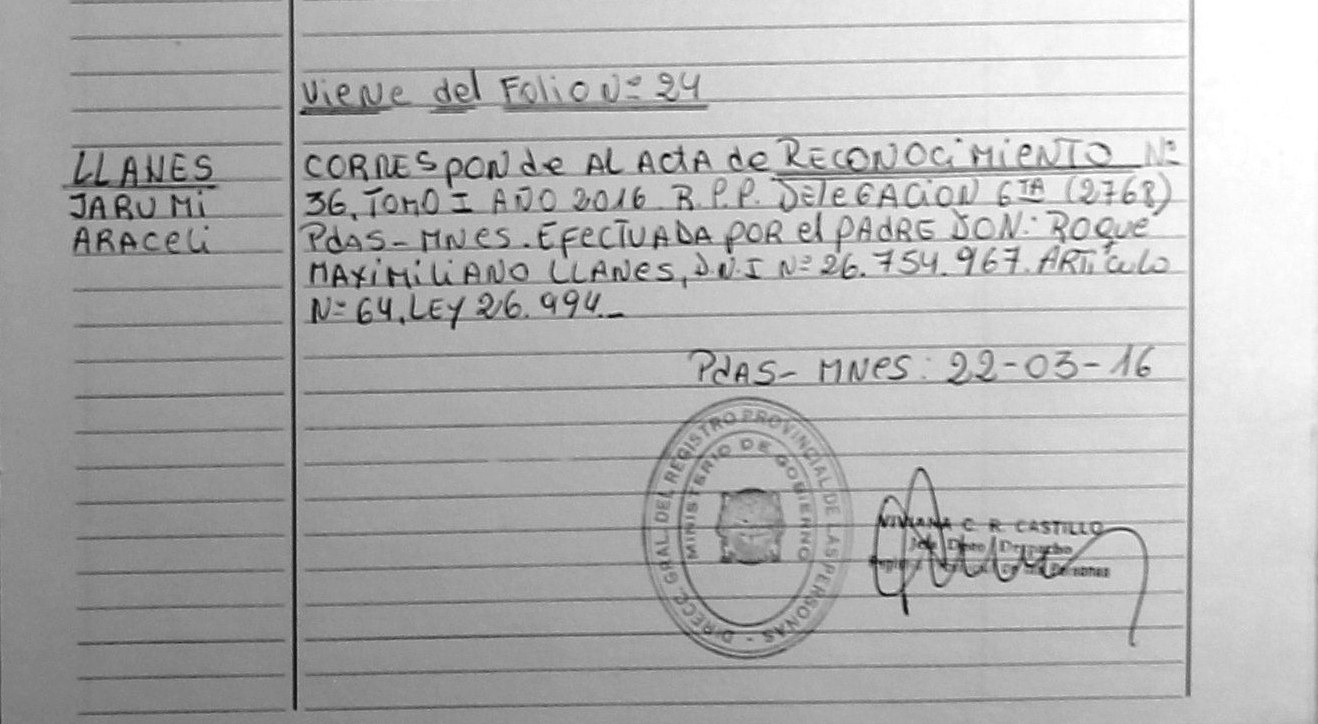 Viene del Folio Nº 24
LLANES
JARUMI
ARACELI
CORRESPONDE AL ACTA de RECONOCIMIENTO Nº
36, TOMO I AÑO 2016 R.P.P. DELEGACION 6TA (2768)
PdAS- MNES. EFECTUADA POR el PADRE DON: ROQUE
MAXIMILIANO LLANES, D.N.I Nº 26.754.967. ARTICULO
Nº 64. LEY 26.994._
PdAS- MNES: 22-03-16
DIRECC. GRAL. DEL REGISTRO PROVINCIAL DE LAS PERSONAS -
MINISTERIO DE GOBIERNO
VIVIANA C. R. CASTILLO
Despacho
Personas